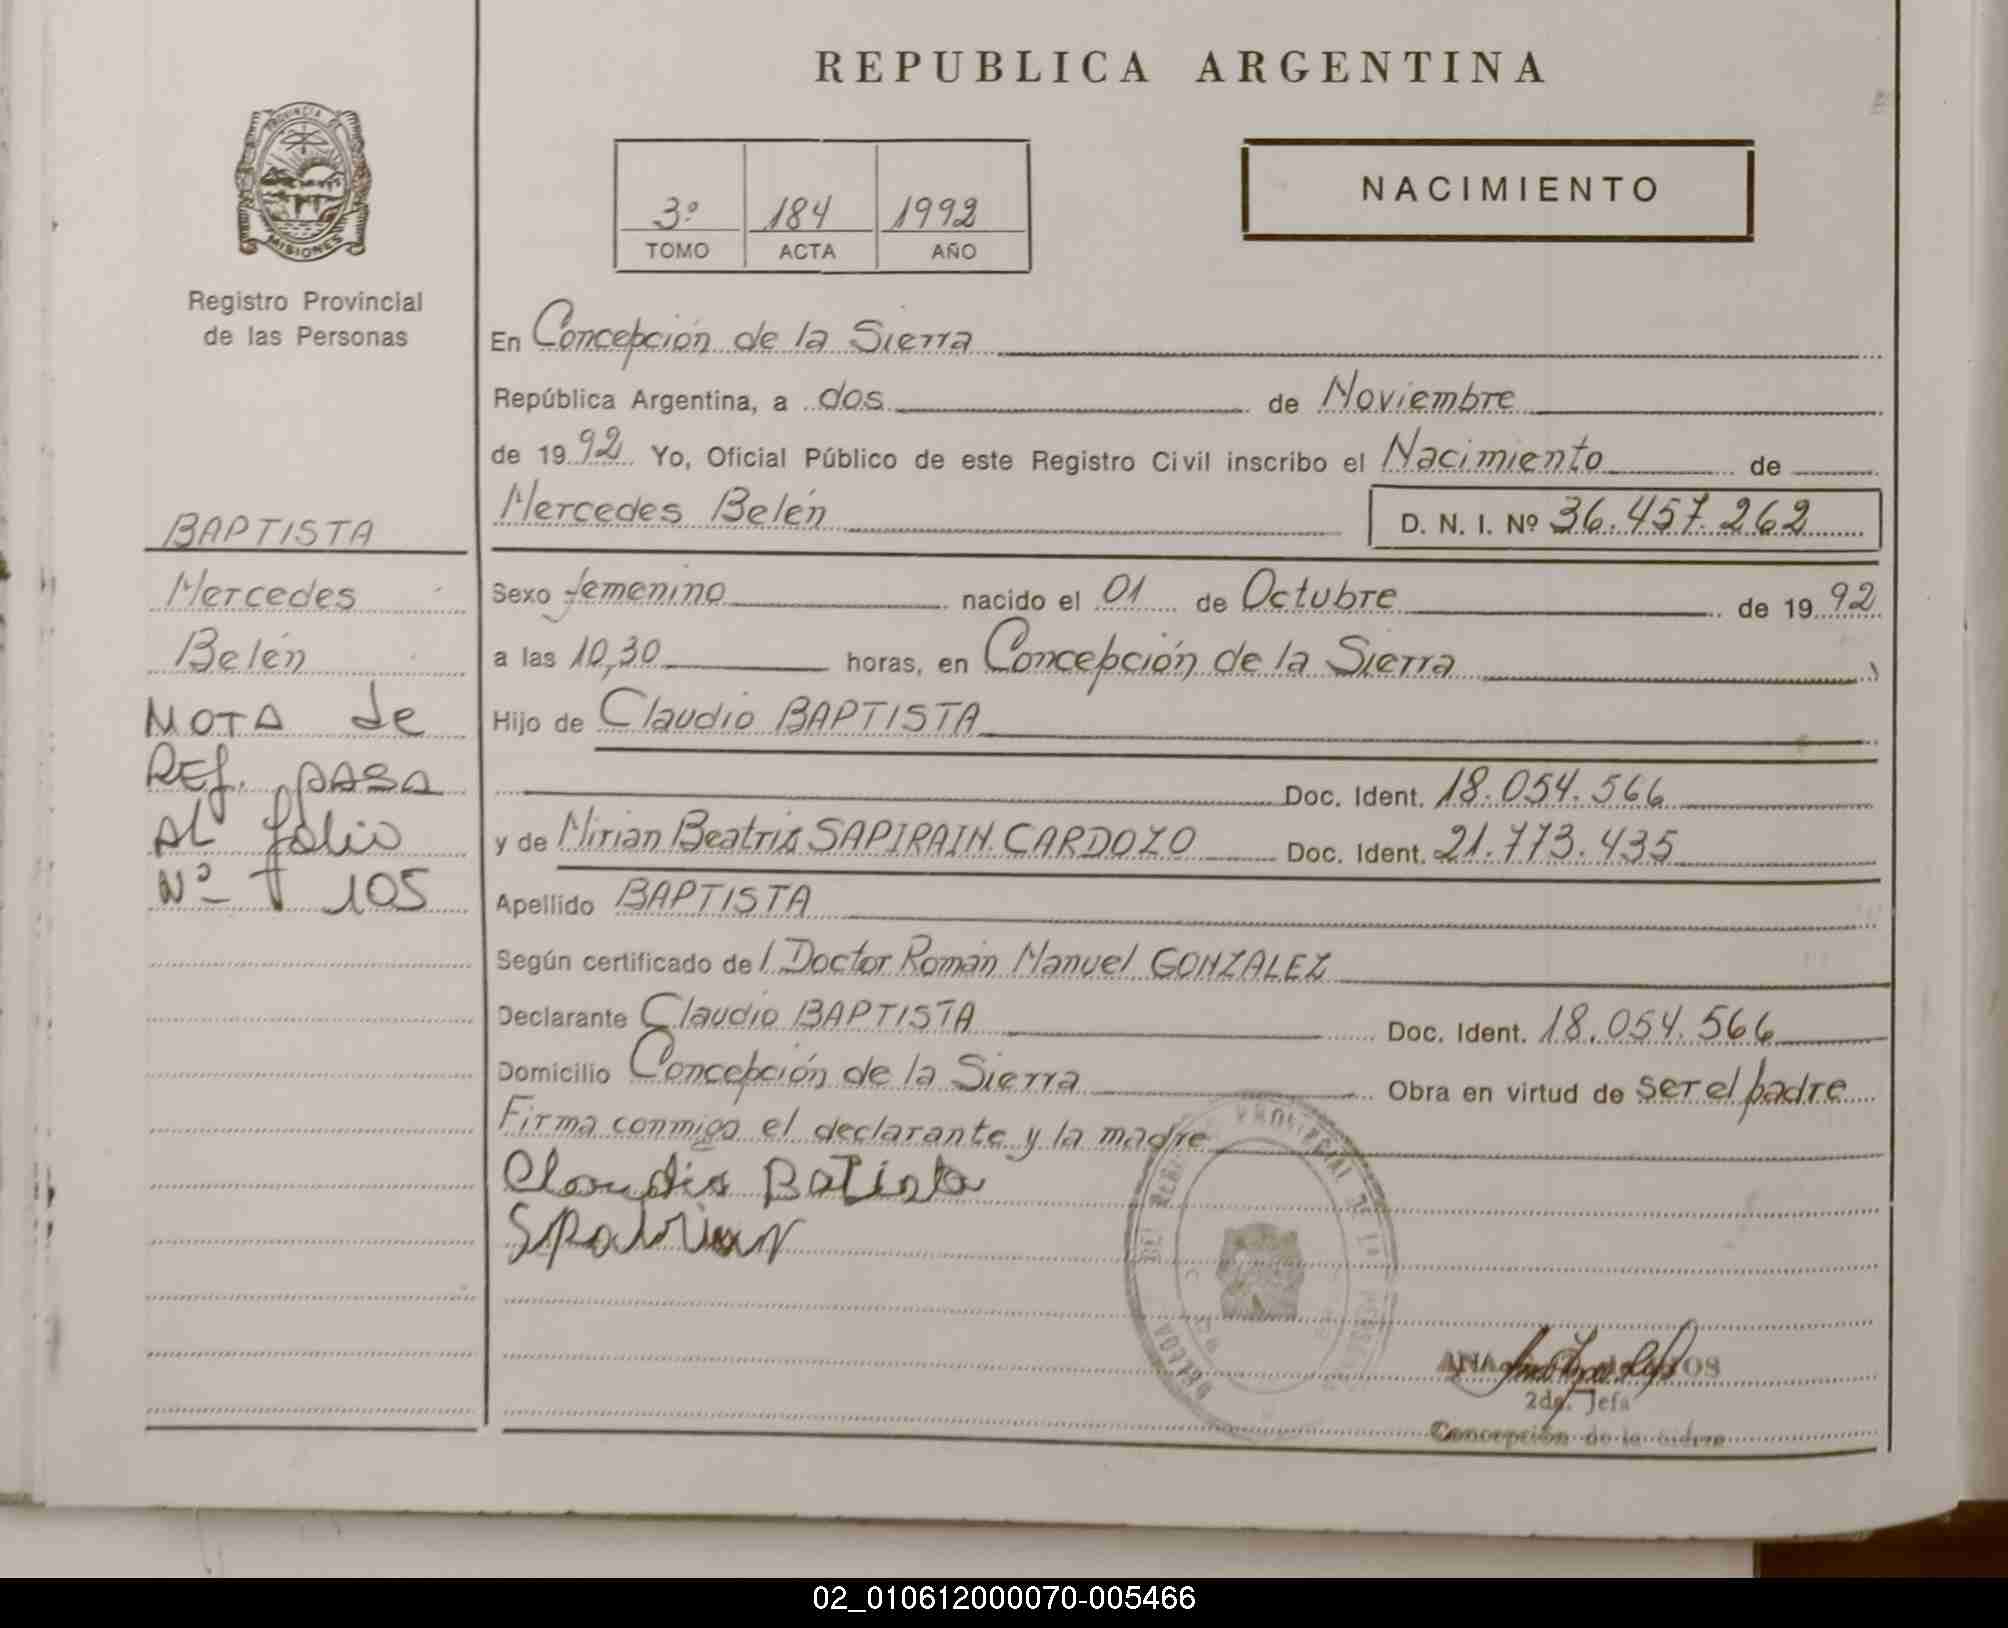 REPUBLICA ARGENTINA
PROVINCIA DE
MISIONES
Registro Provincial
de las Personas
NACIMIENTO
3º 184 1992
TOMO ACTA AÑO
En Concepción de la Sierra
República Argentina, a dos de Noviembre
de 1992 Yo, Oficial Público de este Registro Civil inscribo el Nacimiento de
Mercedes Belén D. N. I. Nº 36.457.262
Sexo femenino nacido el 01 de Octubre de 1992
a las 10,30 horas, en Concepción de la Sierra
Hijo de Claudio BAPTISTA
Doc. Ident. 18.054.566
y de Mirian Beatris SAPIRAIN CARDOZO Doc. Ident. 21.773.435
Apellido BAPTISTA
Según certificado del Doctor Román Manuel GONZALEZ
Declarante Claudio BAPTISTA Doc. Ident. 18.054.566
Domicilio Concepción de la Sierra Obra en virtud de ser el padre
Firma conmigo el declarante y la madre
Claudio Batista
2da. Jefa
Concepción de la Sierra
BAPTISTA
Mercedes
Belén
NOTA de
REf. PASA
AL folio
Nº 105
02_010612000070-005466